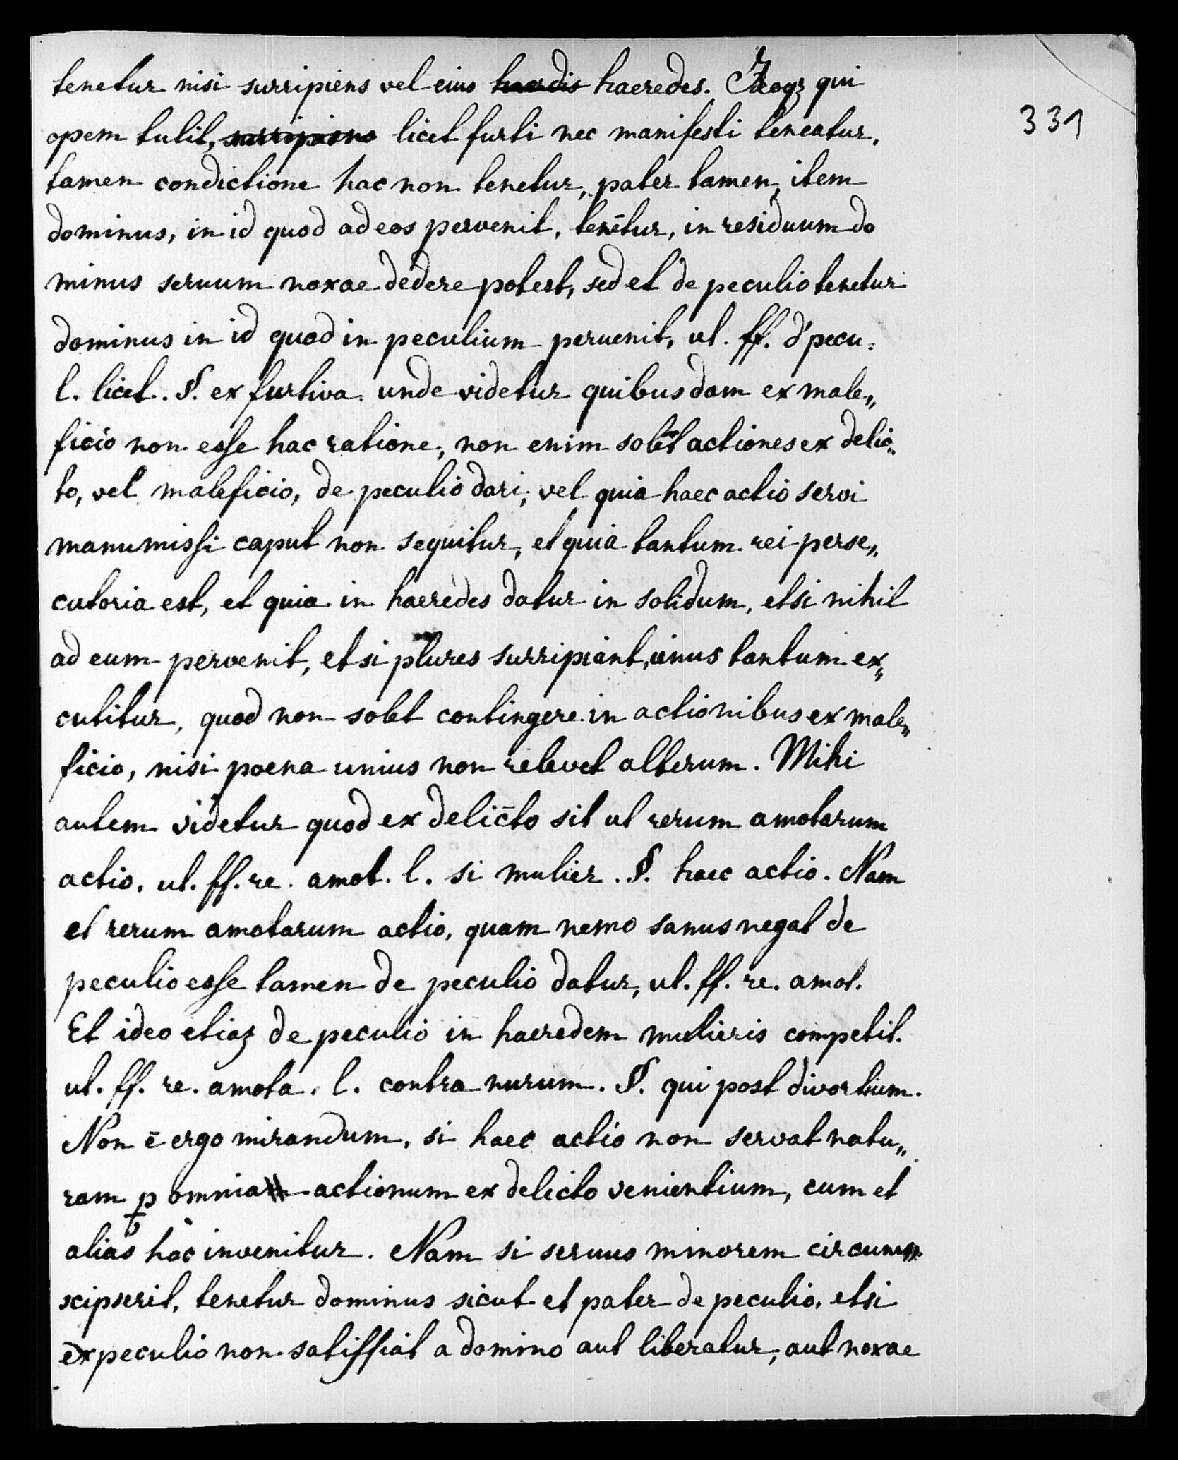 tenetur nisi surripiens vel eius haerdis haeredes. qui
331
opem tulit, surripiens licet furti nec manifesti teneatur,
tamen condictione hac non tenetur, pater tamen, item
dominus, in id quod ad eos pervenit, tenētur, in residuum do
minus seruum noxae dedere potest, sed et de peculio tenetur
dominus in id quod in peculium peruenit, ut. ff. d' pecu.
l. licet. §. ex furtiva. unde videtur quibusdam ex male„
ficio non esse hac ratione, non enim solēt actiones ex delic„
to, vel maleficio, de peculio dari, vel quia haec actio servi
manumissi caput non sequitur, et quia tantum rei perse„
cutoria est, et quia in haeredes datur in solidum, etsi nihil
ad eum pervenit, et si plures surripiant, unus tantum ex„
cutitur, quod non solet contingere in actionibus ex male„
ficio, nisi poena unius non relevet alterum. Mihi
autem videtur quod ex delicto sit ut rerum amotarum
actio, ut. ff. re. amot. l. si mulier. §. haec actio. Nam
et rerum amotarum actio, quam nemo sanus negat de
peculio esse tamen de peculio datur, ut. ff. re. amot.
Et ideo etiaȝ de peculio in haeredem mulieris competit.
ut. ff. re. amota. l. contra nurum. §. qui post divortium.
Non ē ergo mirandum, si haec actio non servat natu„
ram ꝑ omnia actionum ex delicto venientium, cum et
alias hoc invenitur. Nam si seruus minorem circum„
scipserit, tenetur dominus sicut et pater de peculio, etsi
ex peculio non satisfiat a domino aut liberatur, aut noxae